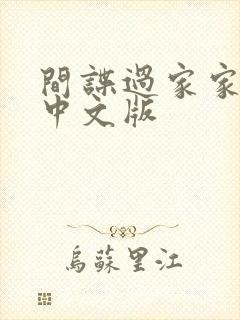 間諜過家家
中文版
烏蘇里江